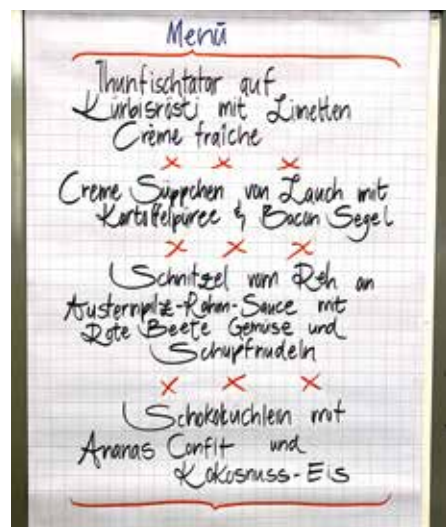 Menü
Thunfischtatar auf
Kürbisrösti mit Limetten
Crème fraîche
x x x
Creme Süppchen von Lauch mit
Kartoffelpüree & Bacon Segel
x x x
Schnitzel vom Reh an
Austernpilz-Rahm-Sauce mit
Rote Beete Gemüse und
Schupfnudeln
x x x
Schokoküchlein mit
Ananas Confit und
Kokosnuss-Eis